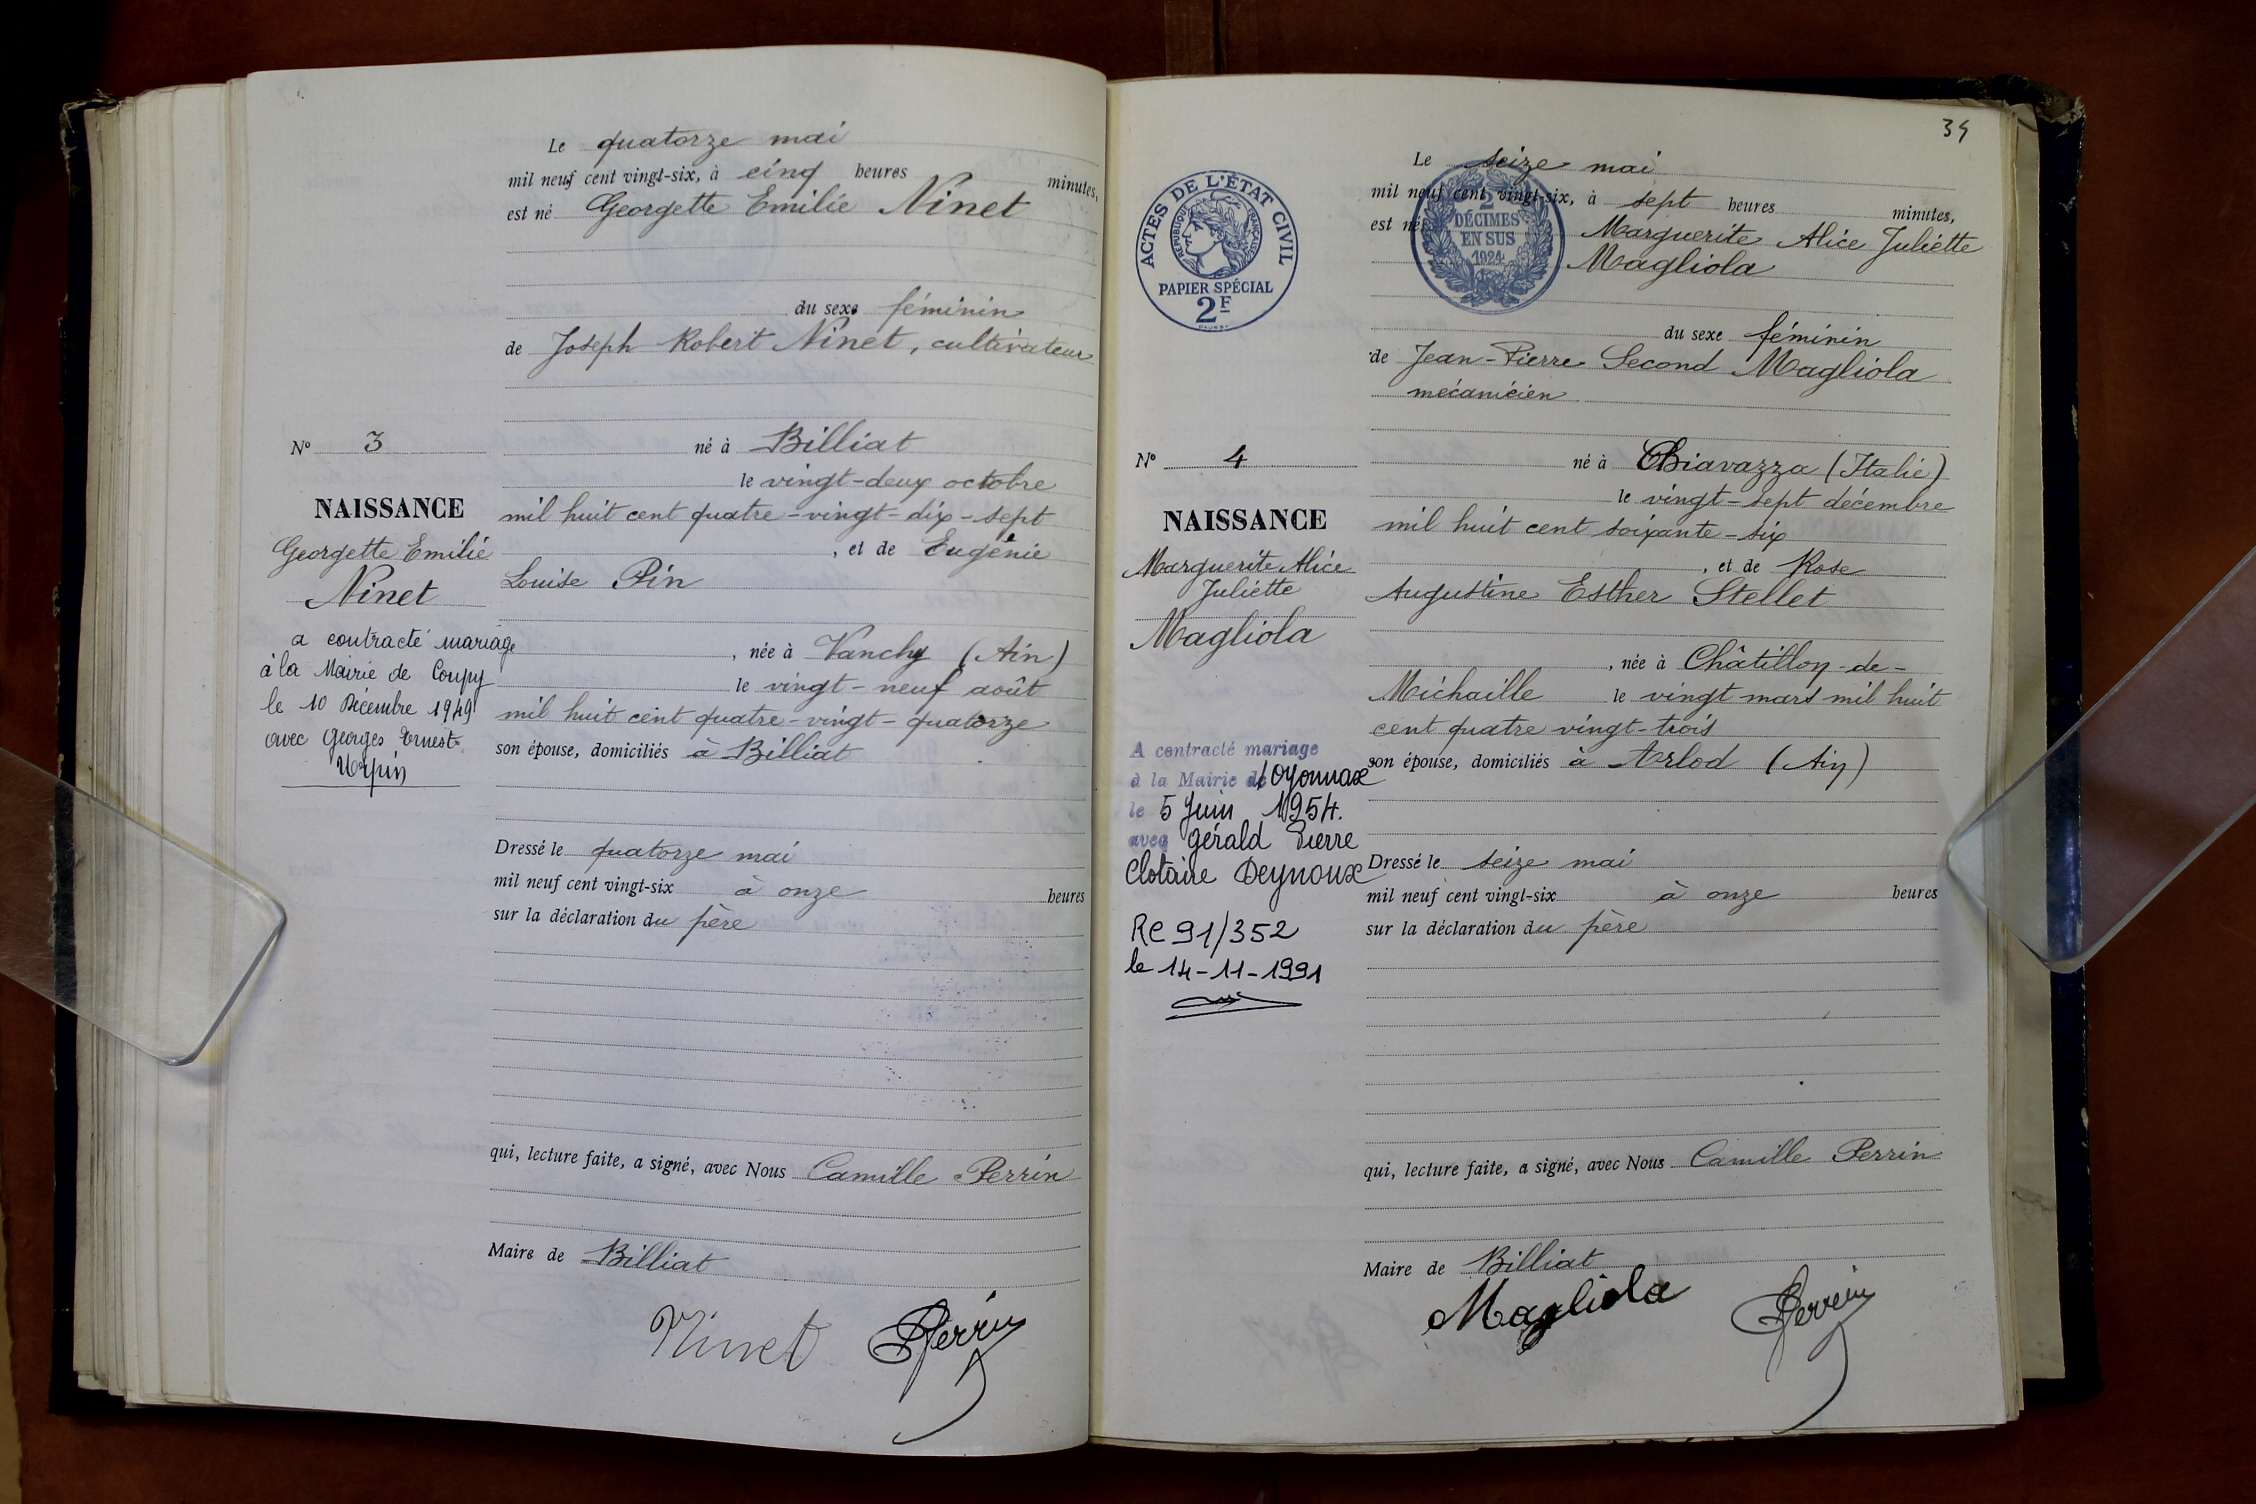 Le quatorze mai
mil neuf cent vingt-six, à cinq heures minutes,
est né Georgette Emilie Ninet
du sexe féminin
de Joseph Robert Ninet, cultivateur
né à Billiat
le vingt-deux octobre
mil huit cent quatre-vingt-dix-sept
, et de Eugénie
Louise Pin
, née à Vanchy (Ain)
le vingt-neuf août
mil huit cent quatre-vingt-quatorze
son épouse, domiciliés à Billiat
Dressé le quatorze mai
mil neuf cent vingt-six à onze heures
sur la déclaration du père
qui, lecture faite, a signé, avec Nous Camille Perrin
Maire de Billiat
Ninet Perrin
N° 3
NAISSANCE
Georgette Emilie
Ninet
a contracté mariage
à la Mairie de Coupy
le 10 Décembre 1949
avec Georges Ernest
34
ACTES DE L'ÉTAT CIVIL
RÉPUBLIQUE FRANÇAISE
PAPIER SPÉCIAL
2F
2
DÉCIMES
EN SUS
1924
Le seize mai
mil neuf cent vingt-six, à sept heures minutes,
est né Marguerite Alice Juliette
Magliola
du sexe féminin
de Jean-Pierre Second Magliola
mécanicien
né à Chiavazza (Italie)
le vingt-sept décembre
mil huit cent soixante-six
, et de Rose
Augustine Esther Stellet
, née à Châtillon-de-
Michaille le vingt mars mil huit
cent quatre vingt-trois
son épouse, domiciliés à Arlod (Ain)
Dressé le seize mai
mil neuf cent vingt-six à onze heures
sur la déclaration du père
qui, lecture faite, a signé, avec Nous Camille Perrin
Maire de Billiat
Magliola Perrin
N° 4
NAISSANCE
Marguerite Alice
Juliette
Magliola
A contracté mariage
à la Mairie d'Oyonnax
le 5 Juin 1954.
avec Gérald Pierre
Clotaire Deynoux
RC 91/352
le 14-11-1991